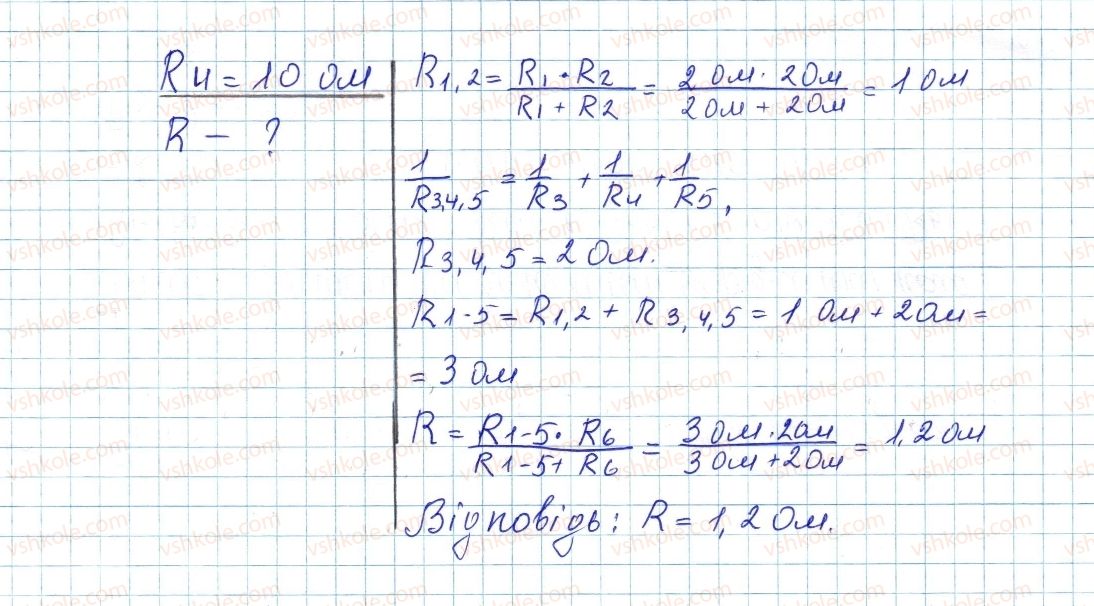 R4 = 10 Ом
R — ?
R1,2 = R1 · R2 / R1 + R2 = 2 Ом · 2 Ом / 2 Ом + 2 Ом = 1 Ом
1 / R3,4,5 = 1 / R3 + 1 / R4 + 1 / R5,
R3,4,5 = 2 Ом.
R1-5 = R1,2 + R3,4,5 = 1 Ом + 2 Ом =
= 3 Ом
R = R1-5 · R6 / R1-5 + R6 = 3 Ом · 2 Ом / 3 Ом + 2 Ом = 1,2 Ом
Відповідь: R = 1,2 Ом.
vshkole.com